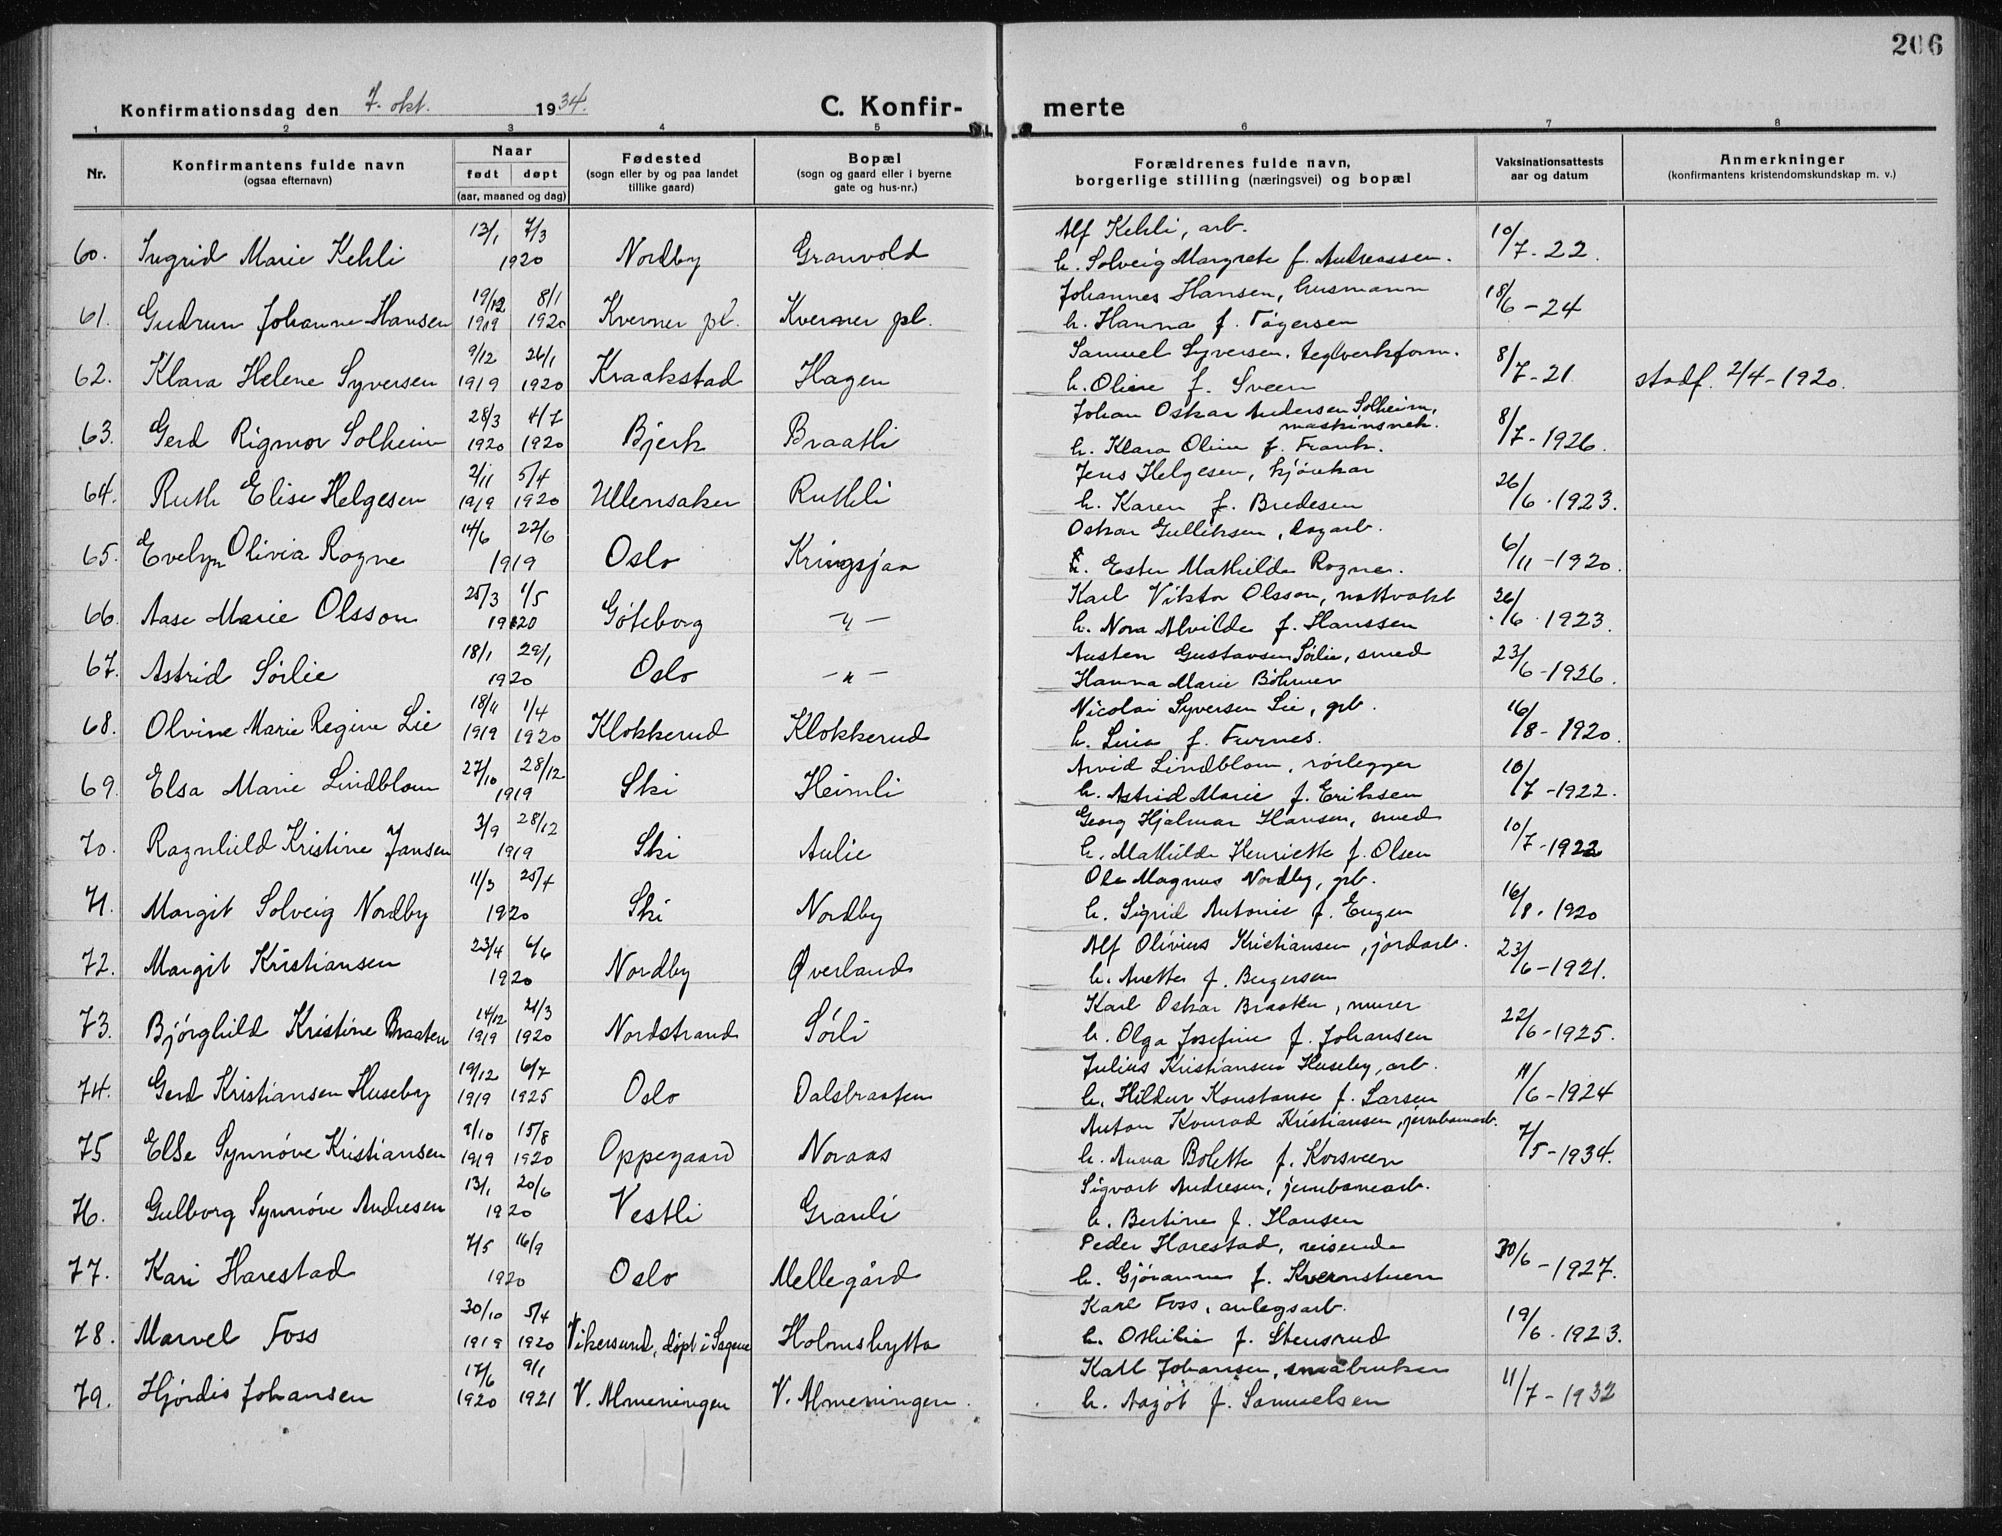 206
Konfirmationsdag den 7. okt. 1934.
C. Konfirmerte
1 2 3 4 5 6 7 8
Nr.
Konfirmantens fulde navn
(ogsaa efternavn)
Naar
født døpt
(aar, maaned og dag)
Fødested
(sogn eller by og paa landet
tillike gaard)
Bopæl
(sogn og gaard eller i byerne
gate og hus-nr.)
Forældrenes fulde navn,
borgerlige stilling (næringsvei) og bopæl
Vaksinationsattests
aar og datum
Anmerkninger
(konfirmantens kristendomskundskap m. v.)
60. Ingrid Marie Kehli 13/1 7/3 1920 Nordby Granvold Alf Kehli, arb. 10/7-22.
h. Solveig Margrete f. Andreassen.
61. Gudrun Johanne Hansen 19/12 1919 8/1 1920 Kverner pl. Kverner pl. Johannes Hansen, husmann 18/6-24
h. Hanna f. Tøgersen
62. Klara Helene Syversen 9/12 1919 26/1 1920 Kraakstad Hagen Samuel Syversen, teglverksform. 8/7-21 stadf. 2/4-1920.
h. Oline f. Sveen
63. Gerd Rigmor Solheim 28/3 1920 4/7 1920 Bjerk Braatli Johan Oskar Andersen Solheim, 8/7-1926.
maskinsnek.
h. Klara Oline f. Frank.
64. Ruth Elise Helgesen 2/11 1919 5/4 1920 Ullensaker Ruthli Jens Helgesen, kjørekar 26/6.1923.
h. Karen f. Bredesen
65. Evelyn Olivia Rogne 14/6 22/6 1919 Oslo Kringsjaa Oskar Gulliksen, dagarb. 6/11-1920.
Ester Mathilde Rogne.
66. Aase Marie Olsson 25/3 1/5 1920 Göteborg -"- Karl Viktor Olsson, nattvakt 26/6.1923.
h. Nora Alvilde f. Hanssen
67. Astrid Sörlie 18/1 29/1 1920 Oslo -"- Austen Gustavsen Sörlie, smed 23/6-1926.
Hanna Marie Böhmer
68. Olvine Marie Regine Lie 18/11 1919 1/4 1920 Klokkerud Klokkerud Nicolai Syversen Lie, grb. 16/8-1920.
h. Lina f. Furnes.
69. Elsa Marie Lindblom 27/10 28/12 1919 Ski Heimli Arvid Lindblom, rørlegger 10/7-1922.
h. Astrid Marie f. Eriksen
70. Ragnhild Kristine Jansen 3/9 28/12 1919 Ski Aulie Georg Hjalmar Hansen, smed 10/7-1922
h. Mathilde Henriette f. Olsen
71. Margit Solveig Nordby 11/3 25/4 1920 Ski Nordby Ole Magnus Nordby, grb. 16/8.1920
h. Sigrid Antonie f. Engen
72. Margit Kristiansen 23/4 6/6 1920 Nordby Øverland Alf Olivius Kristiansen, jordarb. 23/6-1921.
h. Anette f. Bergersen
73. Bjørghild Kristine Braaten 14/12 1919 21/3 1920 Nordstrand Sörli Karl Oskar Braaten, murer 22/6-1925.
h. Olga Josefine f. Johansen
74. Gerd Kristiansen Huseby 19/12 1919 6/7 1925 Oslo Dalsbraaten Julius Kristiansen Huseby, arb. 11/6-1924
h. Hildur Konstanse f. Larsen
75 Else Synnöve Kristiansen 9/10 1919 15/8 1920 Oppegaard Noraas Anton Konrad Kristiansen, jernbanearb. 7/5-1934.
h. Anna Bolette f. Korsveen
76. Gulborg Synnöve Andresen 13/1 20/6 1920 Vestli Granli Sigvart Andresen, jernbanearb.
h. Bertine f. Hansen
77. Kari Harestad 7/5 16/9 1920 Oslo Mellegård Peder Harestad, reisende 30/6-1927.
h. Gjöranne f. Kvernstuen
78. Marvel Foss 30/10 1919 5/4 1920 Vikersund, døpt i Sagene Holmshytta Karl Foss, anlegsarb. 19/6.1923.
h. Othilie f. Stensrud
79. Hjördis Johansen 17/6 1920 9/1 1921 V. Almeningen V. Almeningen. Karl Johansen, småbruker 11/7-1932
h. Aagöt f. Samuelsen